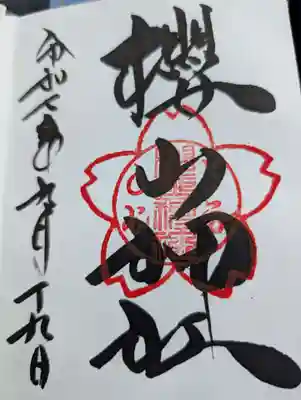 櫻山神社
令和七年九月十九日